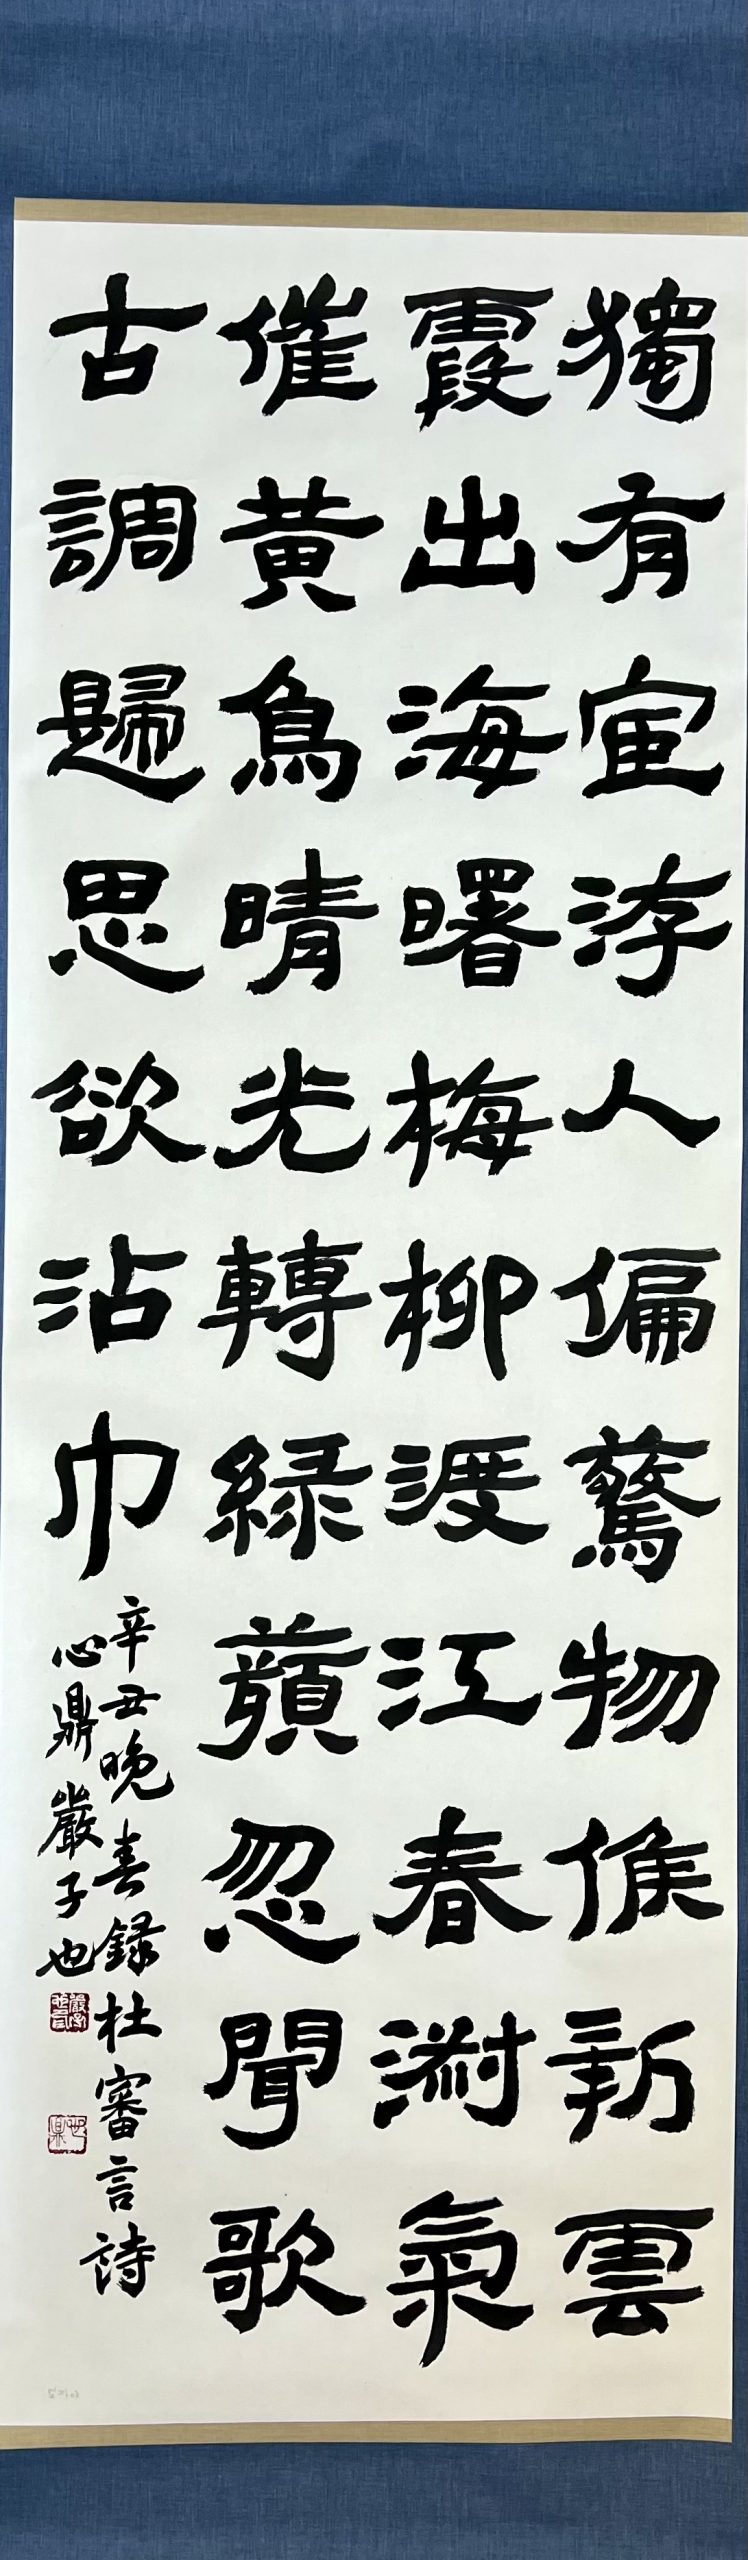 獨有宦游人偏驚物候新雲
霞出海曙梅柳渡江春淑氣
催黃鳥晴光轉綠蘋忽聞歌
古調歸思欲沾巾
辛丑晚春錄杜審言詩
心鼎嚴子也